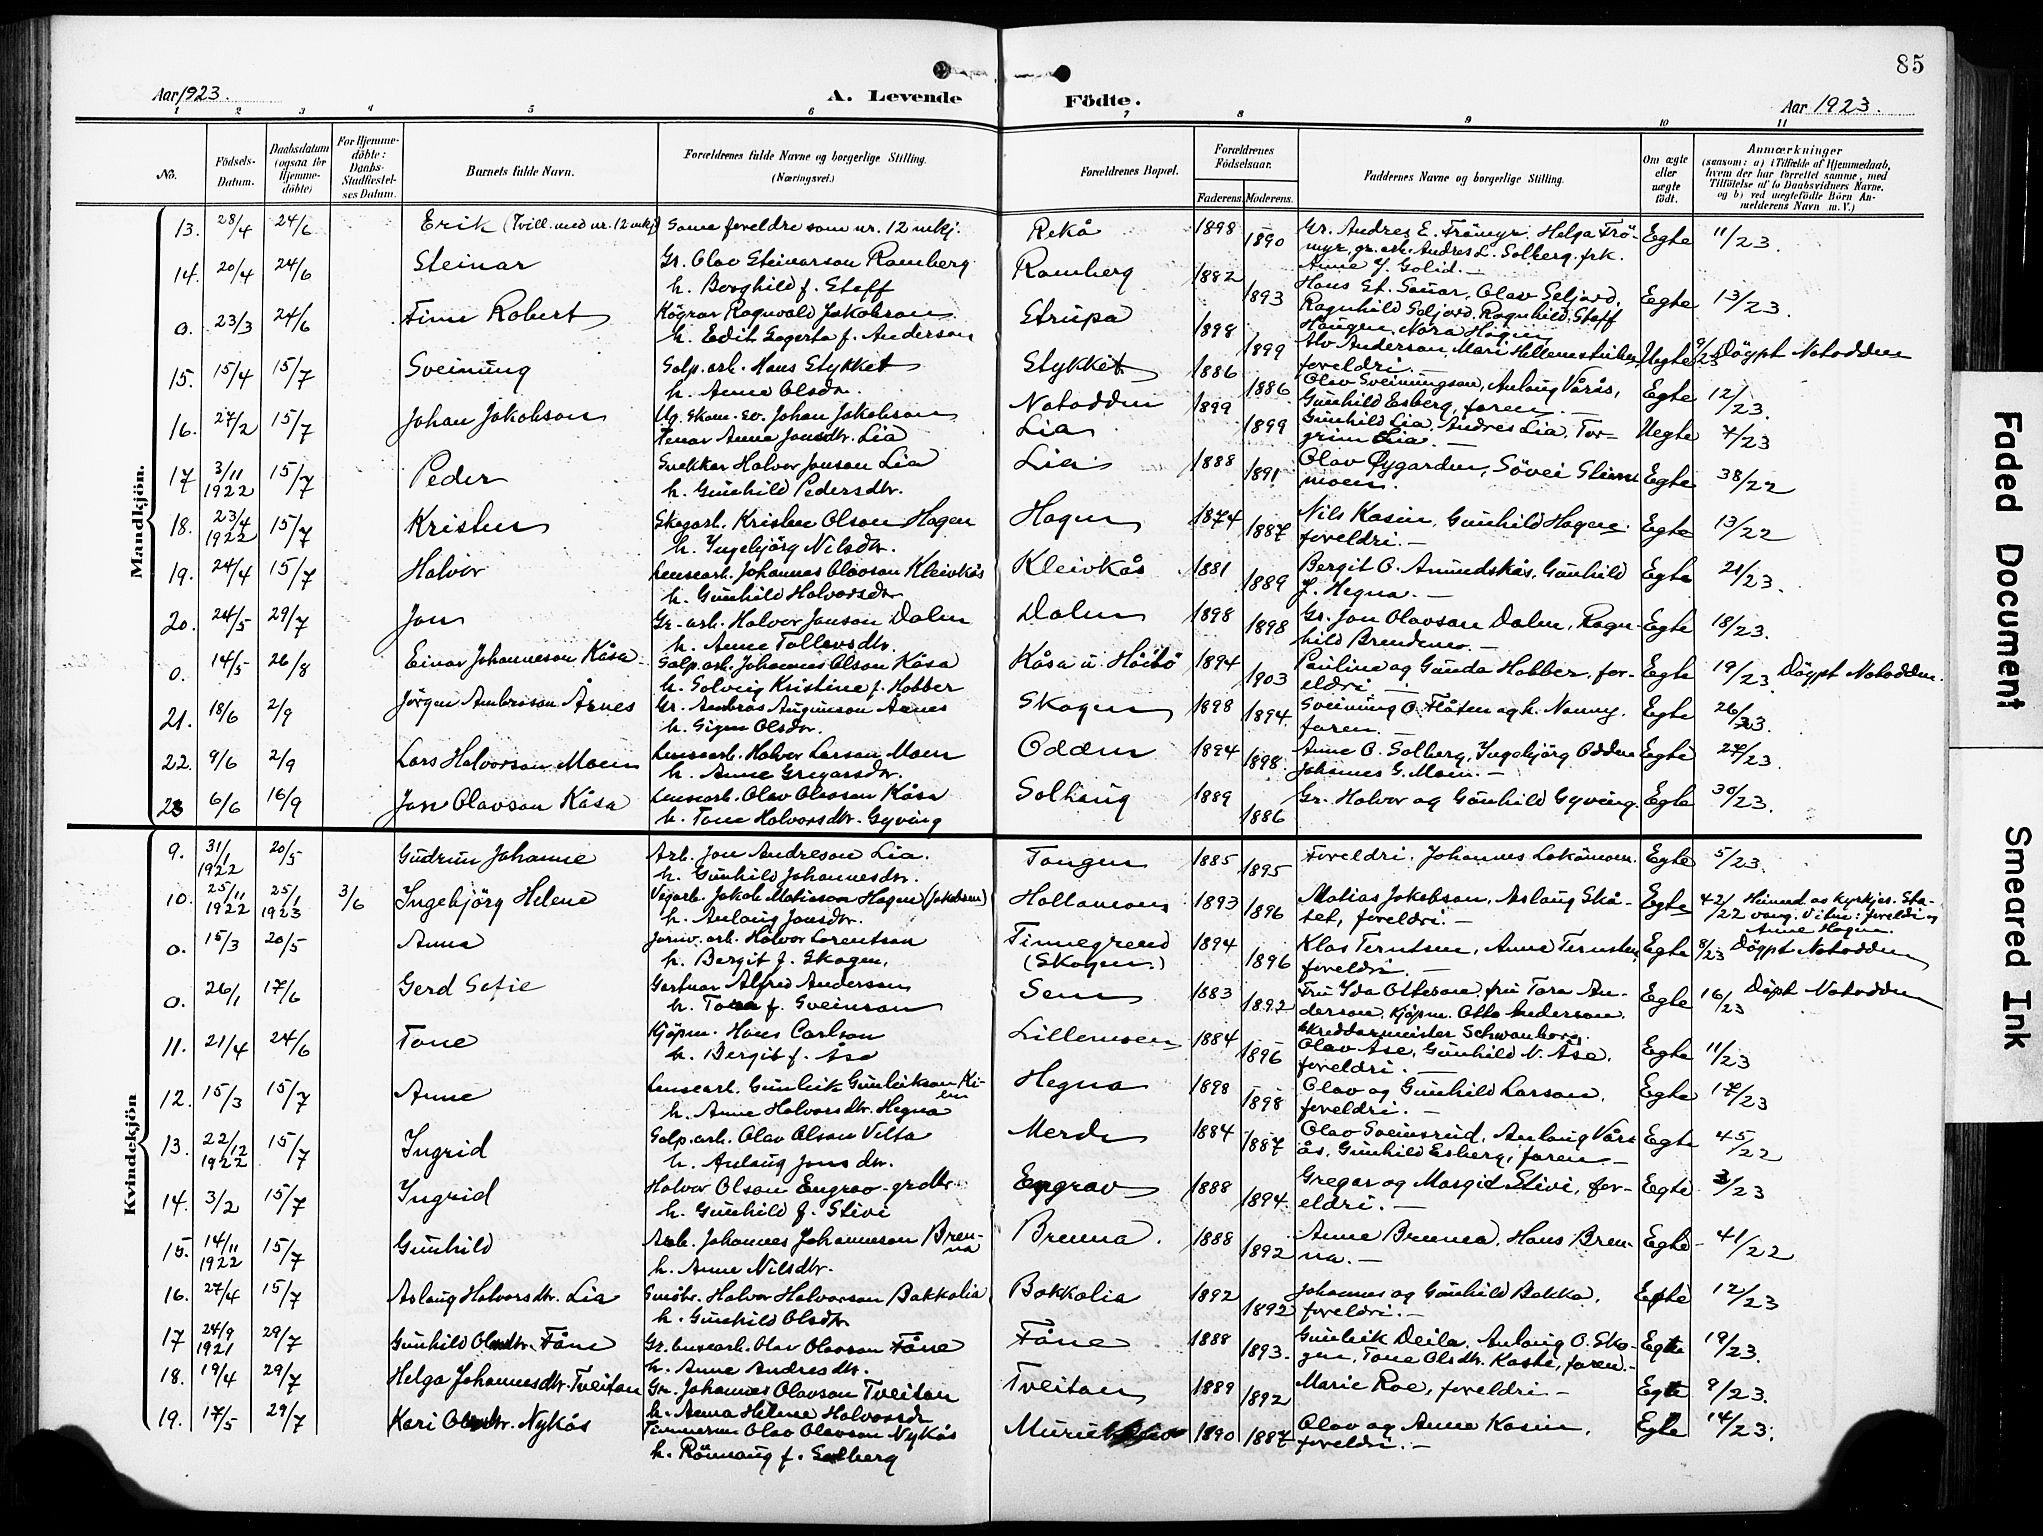 85
Aar 1923.
A. Levende Födte.
Aar 1923.
1 2 3 4 5 6 7 8 9 10 11
No.
Födsels-Datum.
Daabsdatum (ogsaa för Hjemme-döbte)
For Hjemme-döbte: Daabs-Stadfæstel-ses Datum.
Barnets fulde Navn.
Forældrenes fulde Navne og borgerlige Stilling. (Næringsvei.)
Forældrenes Bopæl.
Forældrenes Födselsaar.
Faderens. Moderens.
Faddernes Navne og borgerlige Stilling.
Om ægte eller uægte födt.
Anmærkninger
(saasom: a) i Tilfælde af Hjemmedaab, hvem der har forrettet samme, med Tilföielse af to Daabsvidners Navne, og b) ved uægtefödte Börn An-melderens Navn m. V.)
Mandkjön.
13. 28/4 24/6 Erik (Tvill. med nr. 12 mkj) Same foreldre som nr. 12 mkj. Rekå 1898 1890 Gr. Andres E. Trömyr, Helga Trö-
myr, gr. arb. Andres L. Solberg, frk.
Anne J. Golid. — Egte 11/23.
14. 20/4 24/6 Steinar Gr. Olav Steinarson Ramberg
h. Borghild f. Staff Ramberg 1882 1893 Hans St. Sauar, Olav Seljord,
Ragnhild Seljord, Ragnhild Staff
Haugen, Nora Haugen Egte 13/23.
0. 23/3 24/6 Finn Robert Ragnvald Jakobson
h. Edit f. Anderson Strupa 1898 1899 Anderson, Mari
foreldri. — Uegte 9/23 Döypt Notodden
15. 15/4 15/7 Sveinung Galp. arb. Hans Stykket
h. Anne Olsdr. Stykket 1886 1886 Olav Sveinungson, Aslaug Vårås,
Gunhild Esberg, faren. — Egte 12/23.
16. 27/2 15/7 Johan Jakobson Ug. Johan Jakobson
Anne Jonsdtr. Lia Notodden
Lia 1899 1899 Gunhild Lia, Andres Lia, Tor-
grim Lia. — Uegte 7/23
17 3/11 1922 15/7 Peder Snekkar Halvor Jonson Lia
h. Gunhild Pedersdtr. Lia 1888 1891 Olav Öygarden, Sövei
moen. Egte 38/22
18. 23/4 1922 15/7 Kristen Skogarb. Kristen Olson Hagen
h. Ingebjörg Nilsdtr. Hagen 1874 1887 Nils Kasin, Gunhild Hagen.
foreldri. — Egte 13/22
19. 24/4 15/7 Halvor Lensearb. Johannes Olavson Kleivkås
h. Gunhild Halvorsdtr. Kleivkås 1881 1889 Bergit O. Amundskås, Gunhild
J. Hegna. — Egte 21/23.
20. 24/5 29/7 Jon Gr-arb. Halvor Jonson Dalen
h. Anne Tollevsdtr. Dalen 1898 1898 Gr. Jon Olavson Dalen, Ragn-
hild Brendemo. — Egte 18/23.
0. 14/5 26/8 Einar Johanneson Kåsa Galp. arb. Johannes Olson Kåsa
h. Solveig Kristine f. Hobber Kåsa u. Håibö 1894 1903 Pauline og Gunda Hobber, for-
eldri. — Egte 19/23 Döypt Notodden.
21. 18/6 2/9 Jörgen Ambroson Årnes Gr. Ambros Augunson Årnes
h. Signe Olsdtr. Skogen 1898 1894. Sveinung O. Flåten og h. Nanny,
faren. — Egte 26/23.
22. 9/6 2/9 Lars Halvorson Moen Lensearb. Halvor Larson Moen
h. Anne Gregarsdtr. Odden 1894 1898. Anne O. Solberg, Ingebjörg Odden
Johannes G. Moen. — Egte 27/23.
23 6/6 16/9 Jon Olavson Kåsa Lensearb. Olav Olavson Kåsa
h. Tone Halvorsdtr. Gyving Solhaug 1889 1886 Gr. Halvor og Gunhild Gyving. Egte 30/23.
Kvindekjön
9. 31/1 1922 20/5 Gudrun Johanne Arb. Jon Andreson Lia.
h. Gunhild Johannesdtr. Tangen 1885 1895 Foreldri, Johannes Egte 5/23.
10. 25/11 1922 25/1 1923 3/6 Ingebjörg Helene Vegarb. Jakob Matiason Hagen (Jakobsen)
h. Aslaug Jonsdtr. 1893 1896 Matias Jakobson, Aslaug Skå-
tet, foreldri. — Egte 42/22 Heimd. av kyrkjes. Sta-
vang. Vitne: foreldri og
Anne Hagen.
0. 15/3 20/5 Anna Jernv. arb. Halvor Lorentson
h. Bergit f. Skogen. Tinnegrend
(Skogen) 1894 1896 Klas Terntsen, Anne Terntsen,
foreldri. — Egte 8/23 Döypt Notodden
0. 26/1 17/6 Gerd Sofie Gartnar Alfred Anderson
h. Tora f. Sveinson Sem 1883 1892 Fru Ida Otteson, fru Tora An-
derson, Kjöpm. Otto Anderson,
Skreddarmeister Schwanborg Egte 16/23 Döpt Notodden
11. 21/4 24/6 Tone Kjöpm. Hans Carlson
h. Bergit f. Åse Lillemoen 1884 1896 Olav Åse, Gunhild N. Åse,
foreldri. — Egte 11/23
12. 15/3 15/7 Anne Lensearb. Gunleik Gunleikson Ki-
en
h. Anne Halvorsdtr. Hegna Hegna 1898 1898 Olav og Gunhild Larson,
foreldri. — Egte 17/23
13. 22/12 1922 15/7 Ingrid Galp. arb. Olav Olson Velta
h. Aslaug Jonsdtr. Merde 1884 1887 Olav Sveinsrud, Aslaug Vår-
ås, Gunhild Esberg, faren. — Egte 45/22
14. 3/2 15/7 Ingrid Halvor Olson Engrav
h. Gunhild f. Stivi Engrav 1888 1894 Gregar og Margit Stivi, for-
eldri. — Egte 3/23
15. 14/11 1922 15/7 Gunhild Arb. Johannes Johanneson Bren-
na
h. Anne Nilsdtr. Brenna. 1888 1892 Anne Brenna, Hans Bren-
na. — Egte 41/22
16. 27/4 15/7 Aslaug Halvorsdtr. Lia Halvor Halvorson Bakkalia
h. Gunhild Olsdtr Bakkalia 1892 1892 Johannes og Gunhild Bakka,
foreldri. — Egte 12/23
17 24/9 1921 29/7 Gunhild Olavsdtr. Fåne Gr. lensearb. Olav Olavson Fåne
h. Anne Andresdtr. Fåne 1888 1893. Gunleik Deila, Aslaug O. Sko-
gen, Tone Olsdtr. Kaste, faren. — Egte 19/23.
18. 19/4 29/7 Helga Johannesdtr. Tveitan Gr. Johannes Olavson Tveitan
h. Anna Helene Halvorsdr Tveitan 1889 1892 Marie Roe, foreldri — Egte 9/23.
19. 17/5 29/7 Kari Olavsdtr. Nykås Olav Olavson Nykås
h. Rönnaug f. Solberg 1890 1887 Olav og Anne Kasin,
foreldri. — Egte 14/23.
Faded Document
Smeared Ink